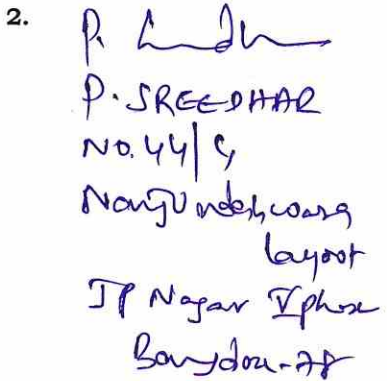 2.
P. SREEDHAR
NO. 44/4
Nanjundeshwara
layout
JP Nagar V phase
Bangalore-78